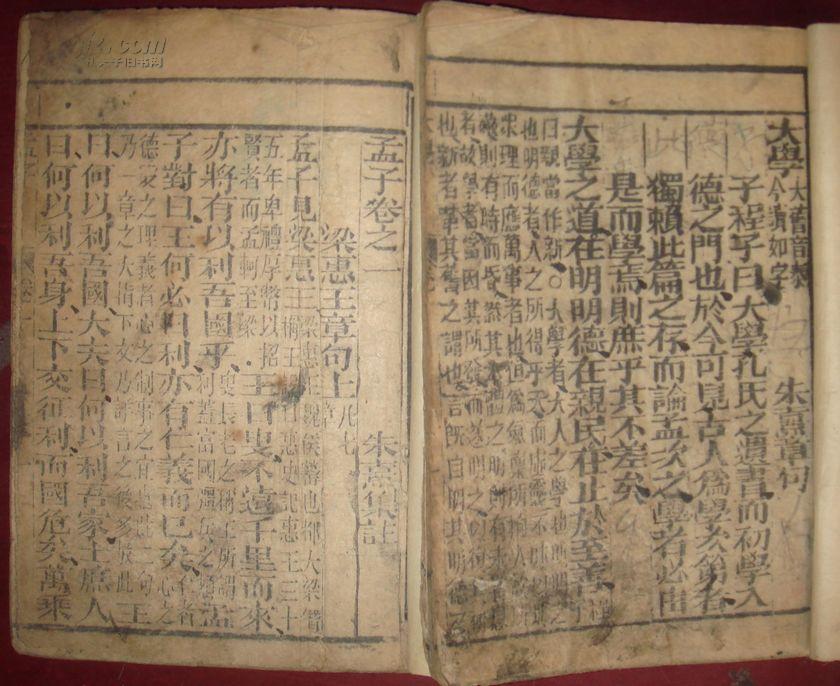 大學 大舊音泰今讀如字 朱熹章句
子程子曰大學孔氏之遺書而初學入
德之門也於今可見古人爲學次第者
獨賴此篇之存而論孟次之學者必由
是而學焉則庶乎其不差矣
大學之道在明明德在親民在止於至善 程子
曰親當作新○大學者大人之學也
也明德者人之所得乎天而虛靈不昧以
求理而應萬事者也但爲氣稟所拘人
蔽則有時而昏然其本體之明則有未嘗息
者故學者當因其所發而遂明之以
也新者革其舊之謂也言旣自明其明德
孟子卷之一
梁惠王章句上 凡七章 朱熹集註
孟子見梁惠王 梁惠王魏侯罃也都大梁僭稱王 惠史記惠王三十
五年卑禮厚幣以招賢者而孟軻至梁 王曰叟不遠千里而來
亦將有以利吾國乎 叟長老之稱王所謂利蓋富國彊兵之 孟
子對曰王何必曰利亦有仁義而已矣 仁者心之
德愛之理義者心之制事之宜也此二句
乃一章之大指下文乃詳言之後多放此 王
曰何以利吾國大夫曰何以利吾家士庶人
曰何以利吾身上下交征利而國危矣萬乘